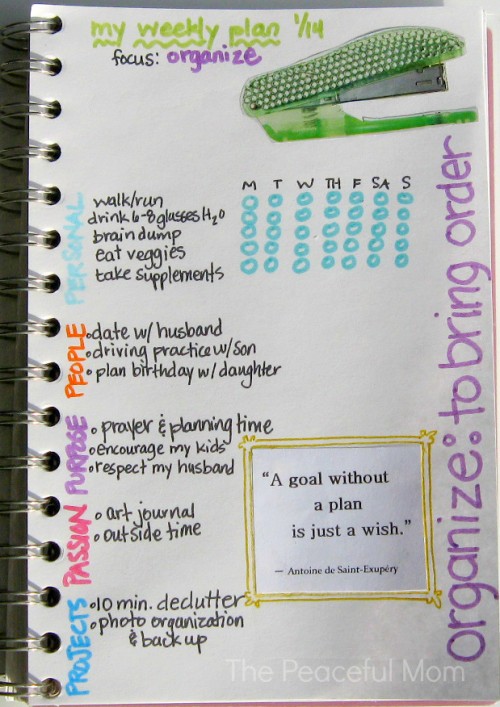 my weekly plan 1/14
focus: organize
M T W TH F SA S
PERSONAL
walk/run
drink 6-8 glasses H₂O
brain dump
eat veggies
take supplements
PEOPLE
date w/ husband
driving practice w/son
plan birthday w/ daughter
PURPOSE
prayer & planning time
encourage my kids
respect my husband
PASSION
art journal
outside time
PROJECTS
10 min. declutter
photo organization
& back up
"A goal without
a plan
is just a wish."
— Antoine de Saint-Exupéry
organize: to bring order
The Peaceful Mom